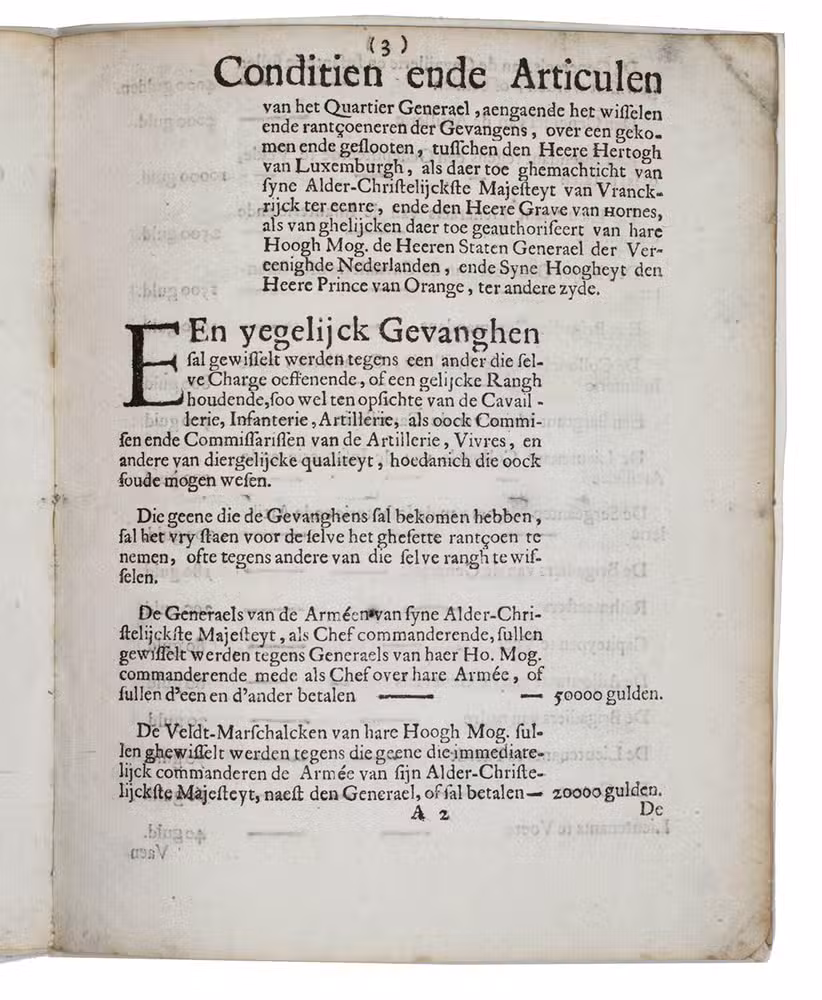 (3)
Conditien ende Articulen
van het Quartier Generael, aengaende het wiſſelen
ende rantçoeneren der Gevangens, over een geko-
men ende geſlooten, tuſſchen den Heere Hertogh
van Luxemburgh, als daer toe ghemachticht van
ſyne Alder-Chriſtelijckſte Majeſteyt van Vranck-
rijck ter eenre, ende den Heere Grave van HORNES,
als van ghelijcken daer toe geauthoriſeert van hare
Hoogh Mog. de Heeren Staten Generael der Ver-
eenighde Nederlanden, ende Syne Hoogheyt den
Heere Prince van Orange, ter andere zyde.
EEn yegelijck Gevanghen
ſal gewiſſelt werden tegens een ander die ſel-
ve Charge oeffenende, of een gelijcke Rangh
houdende, ſoo wel ten opſichte van de Cavail-
lerie, Infanterie, Artillerie, als oock Commi-
ſen ende Commiſſariſſen van de Artillerie, Vivres, en
andere van diergelijcke qualiteyt, hoedanich die oock
ſoude mogen weſen.
Die geene die de Gevanghens ſal bekomen hebben,
ſal het vry ſtaen voor de ſelve het gheſette rantçoen te
nemen, ofte tegens andere van die ſelve rangh te wiſ-
ſelen.
De Generaels van de Arméen van ſyne Alder-Chri-
ſtelijckſte Majeſteyt, als Chef commanderende, ſullen
gewiſſelt werden tegens Generaels van haer Ho. Mog.
commanderende mede als Chef over hare Armée, of
ſullen d'een en d'ander betalen —— — 50000 gulden.
De Veldt-Marſchalcken van hare Hoogh Mog. ſul-
len ghewiſſelt werden tegens die geene die immediate-
lijck commanderen de Armée van ſijn Alder-Chriſte-
lijckſte Majeſteyt, naeſt den Generael, of ſal betalen — 20000 gulden.
A 2 De